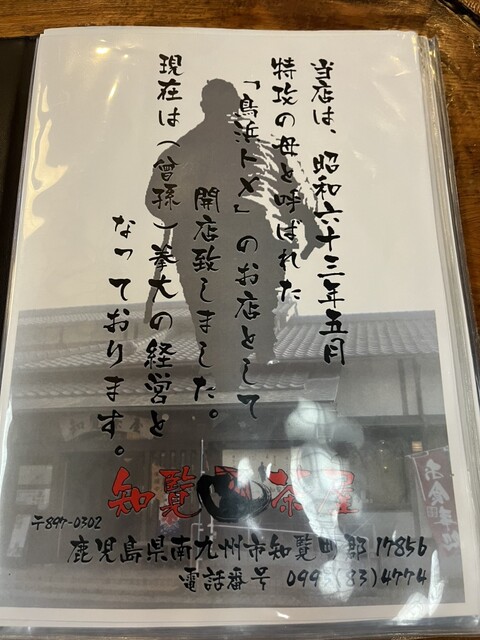 当店は、昭和六十三年五月
特攻の母と呼ばれた
「鳥浜トメ」のお店として
開店致しました。
現在は(曾孫)拳大の経営と
なっております。
知覧茶屋
〒897-0302
鹿児島県南九州市知覧町郡17856
電話番号 0993(83)4774